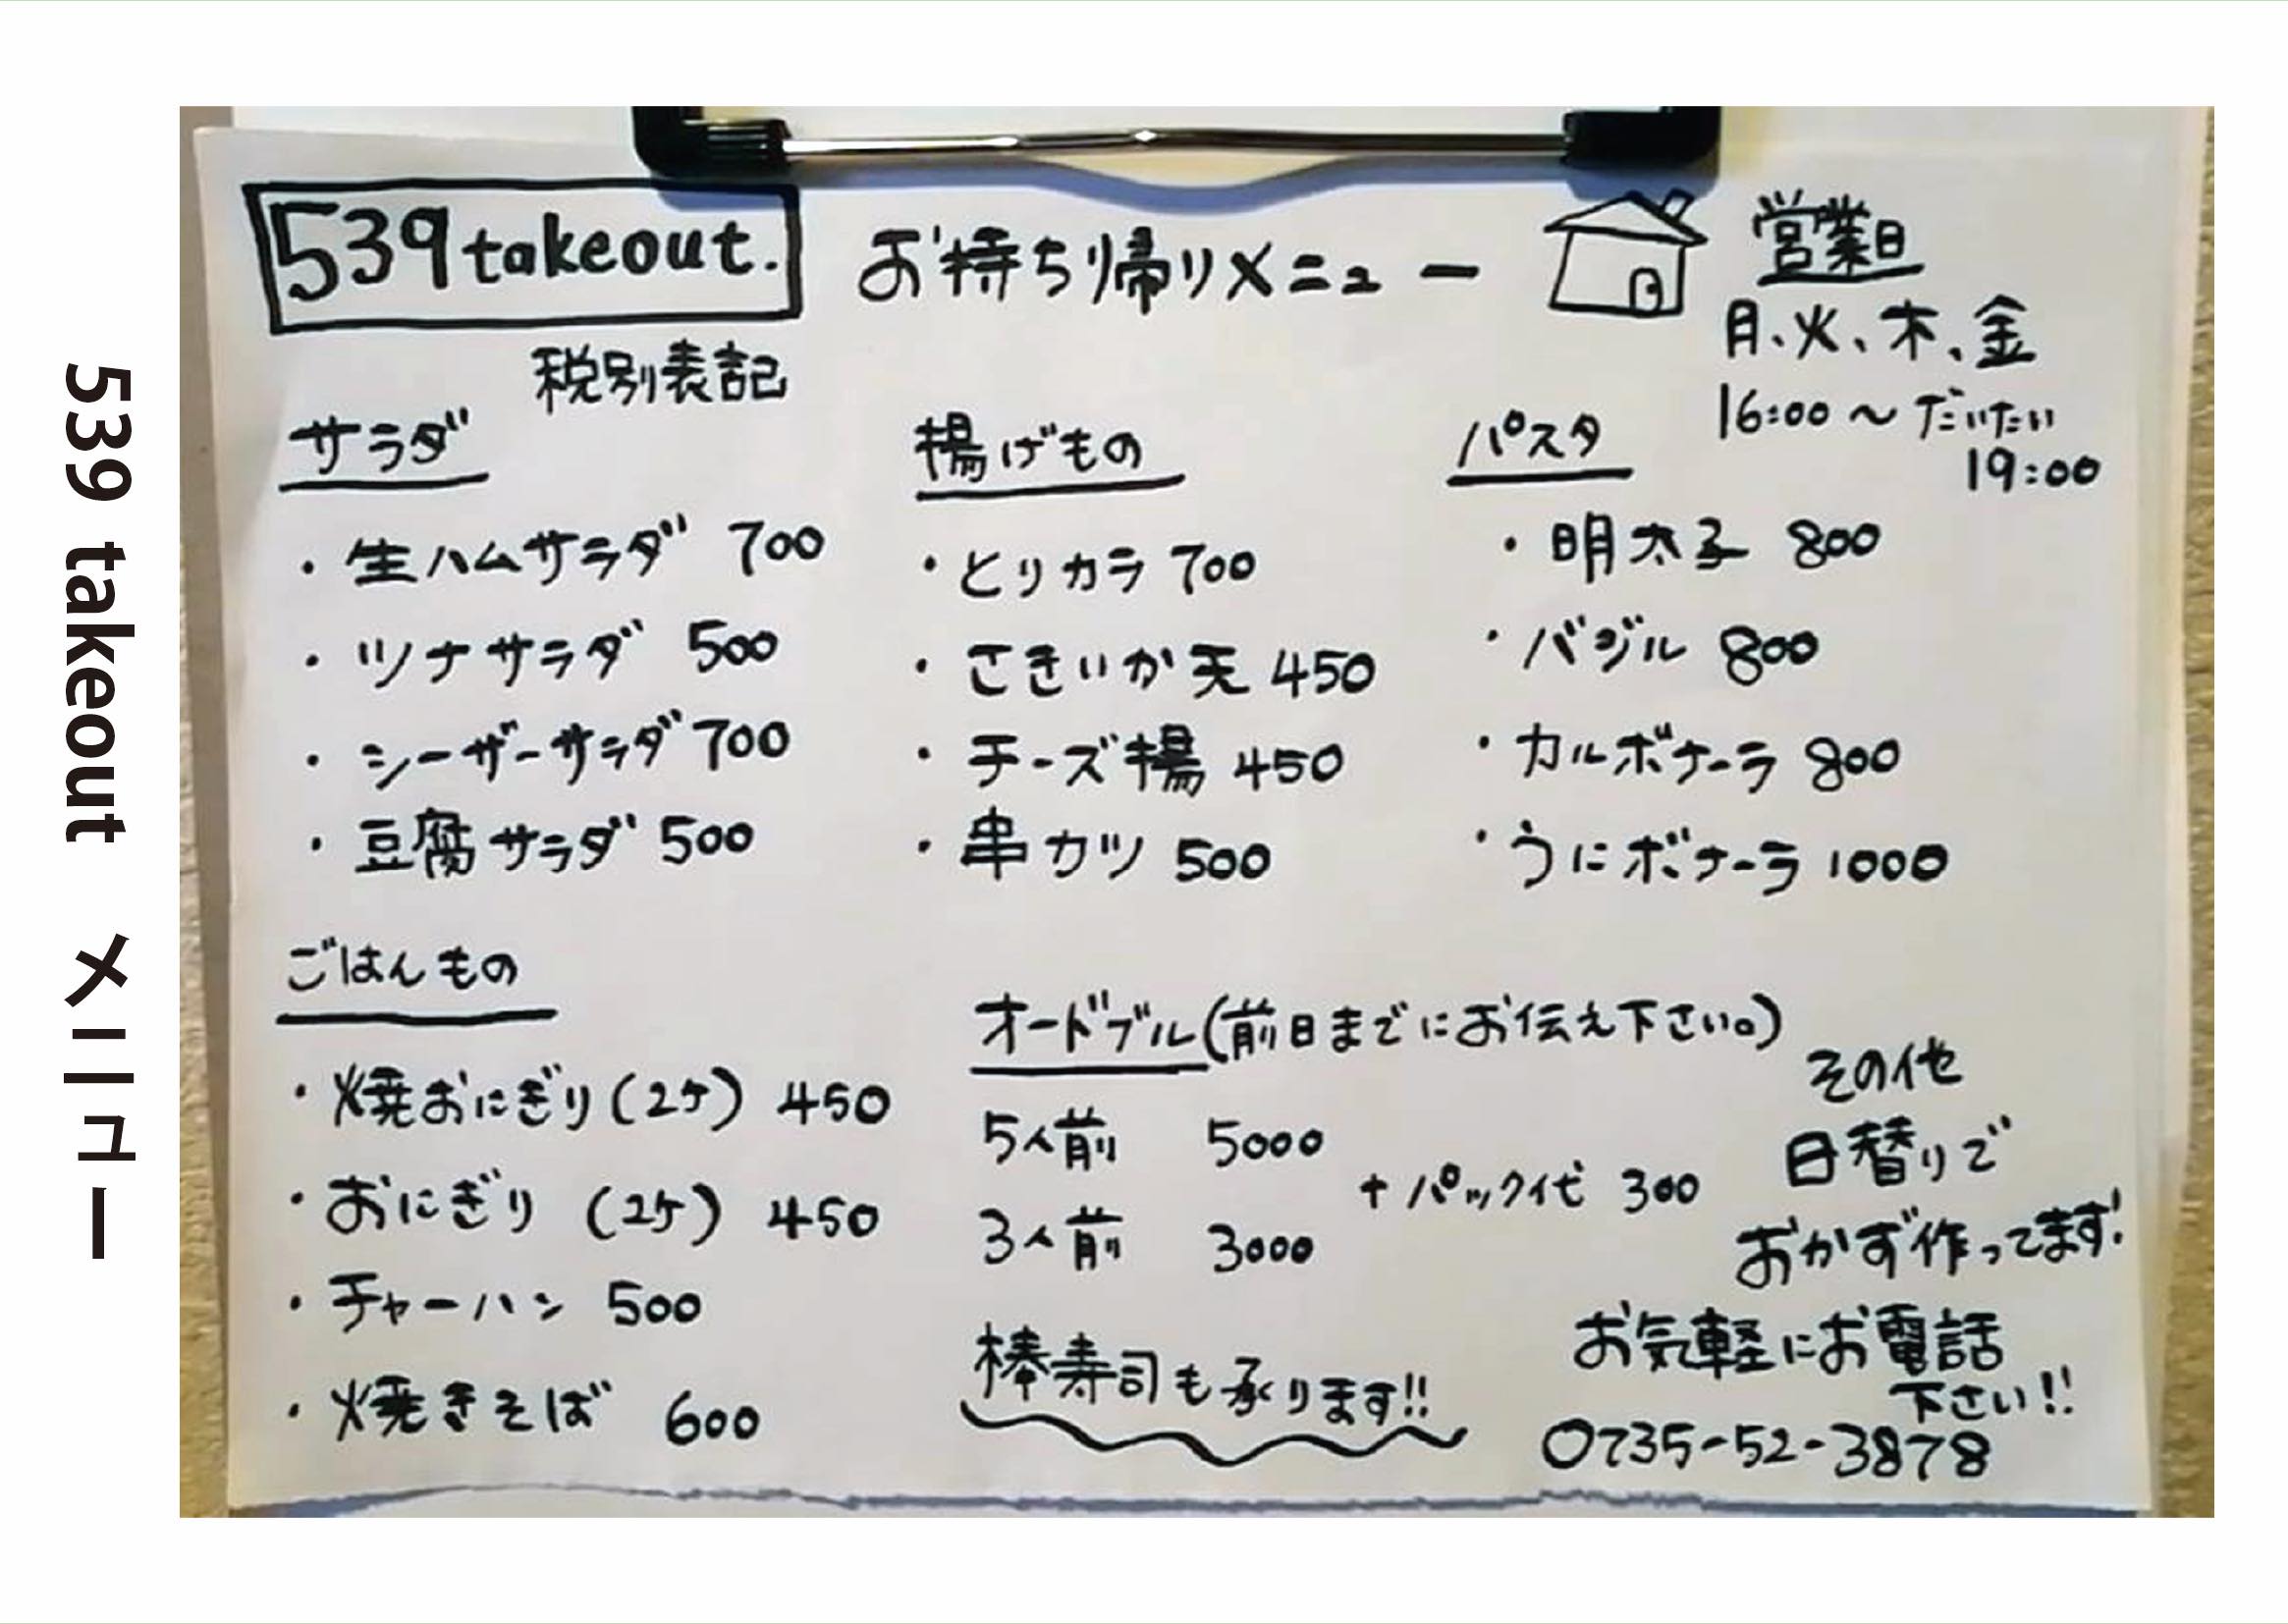 539 takeout メニュー
539 takeout.
お持ち帰りメニュー
営業日
月、火、木、金
16:00～だいたい
19:00
税別表記
サラダ
・生ハムサラダ 700
・ツナサラダ 500
・シーザーサラダ 700
・豆腐サラダ 500
揚げもの
・とりカラ 700
・さきいか天 450
・チーズ揚 450
・串カツ 500
パスタ
・明太子 800
・バジル 800
・カルボナーラ 800
・うにボナーラ 1000
ごはんもの
・焼おにぎり(2ケ) 450
・おにぎり (2ケ) 450
・チャーハン 500
・焼きそば 600
オードブル(前日までにお伝え下さい。)
5人前 5000
3人前 3000
+パック代 300
棒寿司も承ります!!
その他
日替りで
おかず作ってます!
お気軽にお電話
下さい!!
0735-52-3878